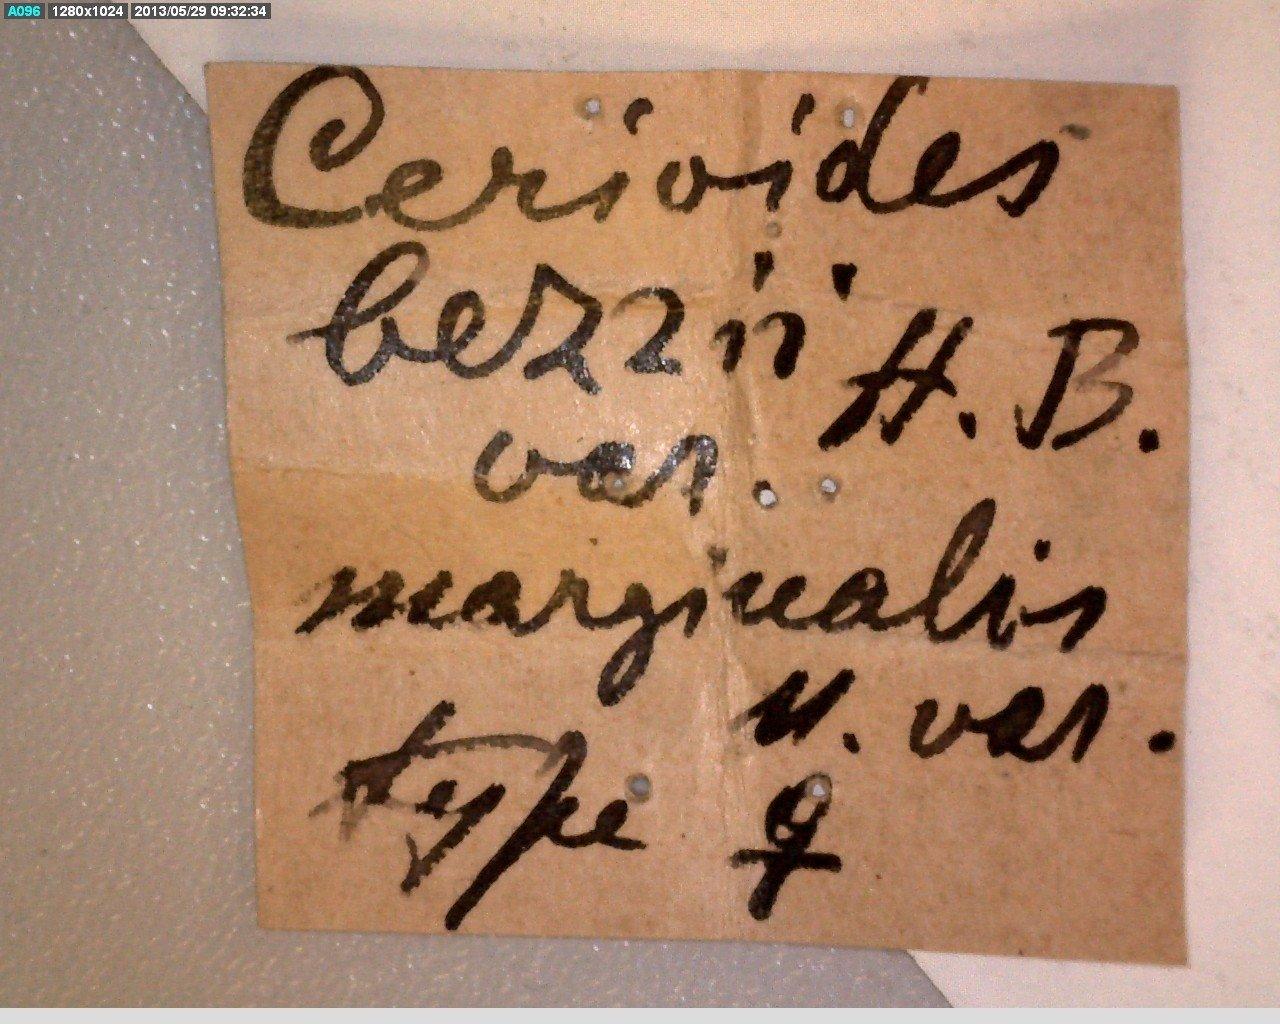 A096 1280x1024 2013/05/29 09:32:34
Cerioides
bezzii H. B.
var.
marginalis
n. var.
type ♀